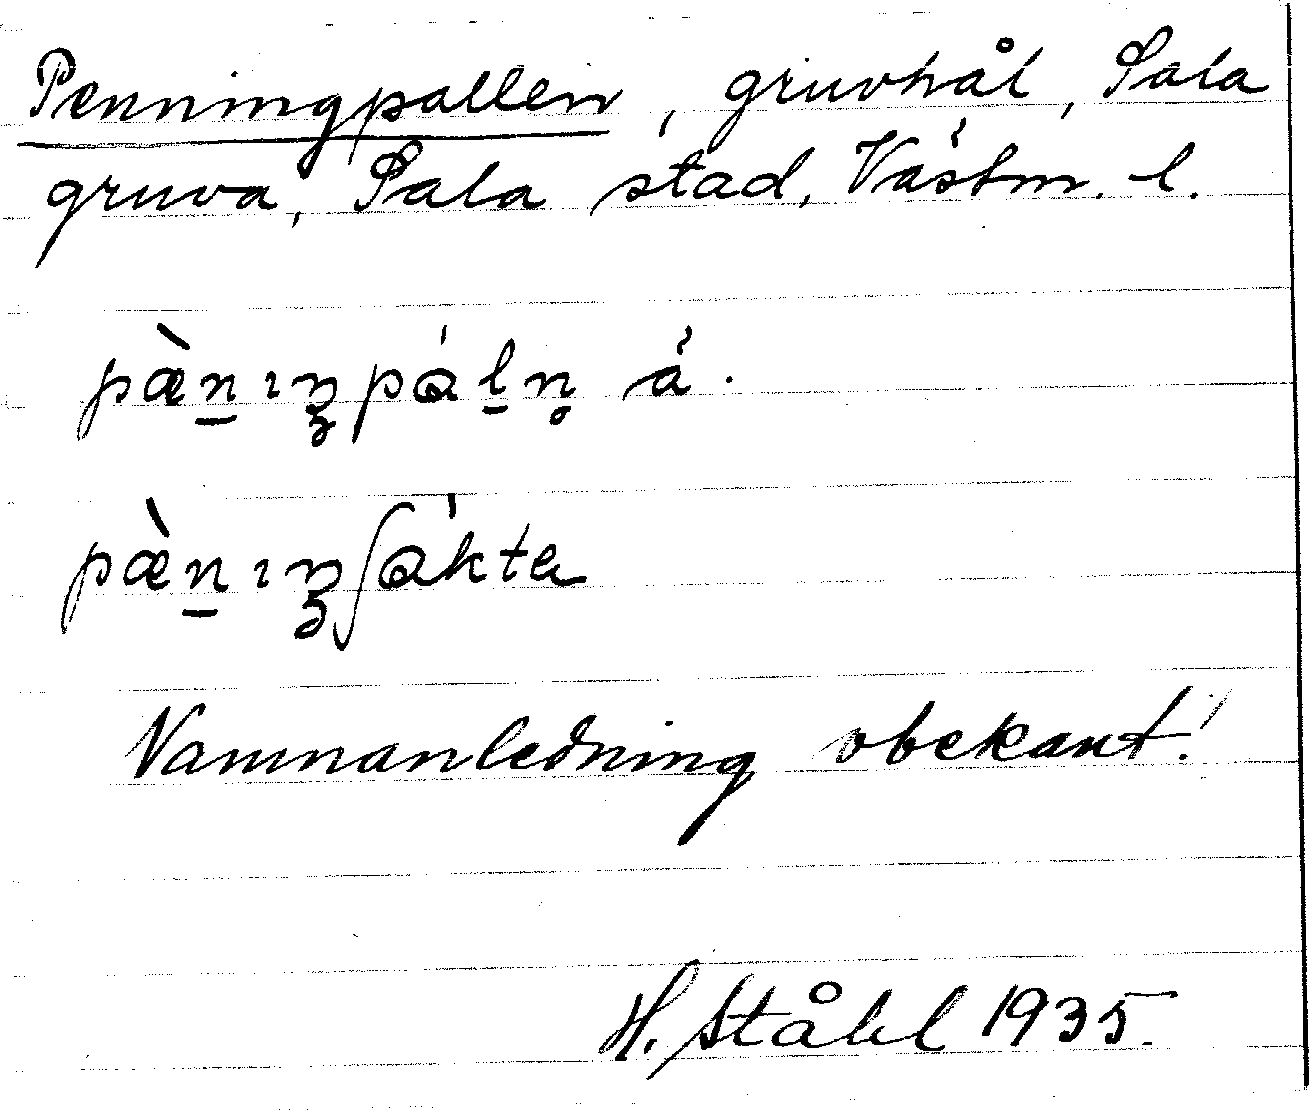 Penningpallen, gruvhål, Sala
gruva, Sala stad, Västm. l.
pæ̀n̠ıŋpál̠n̥ ä́.
pæ̀n̠ıŋʃákta
Namnanledning obekant!
H. Ståhl 1935.